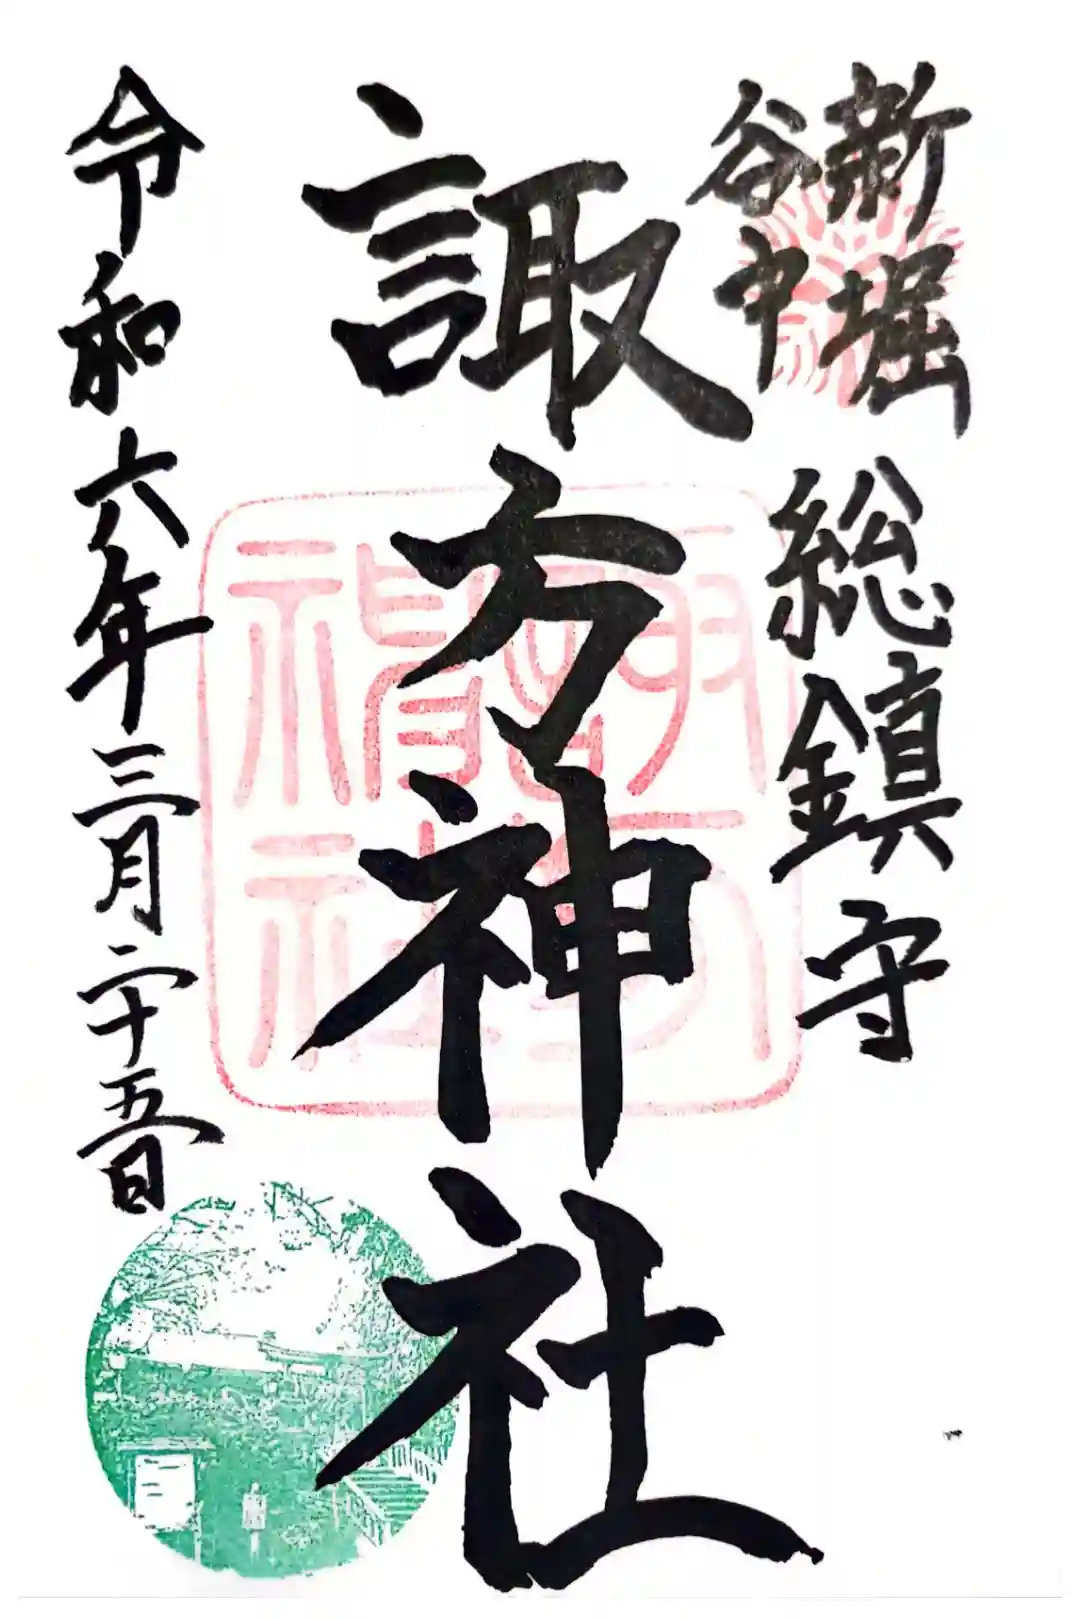 新堀
谷中
総鎮守
諏方神社
令和六年三月二十五日